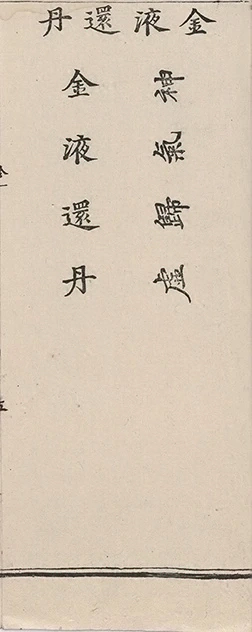 金液還丹
神氣歸虛
金液還丹